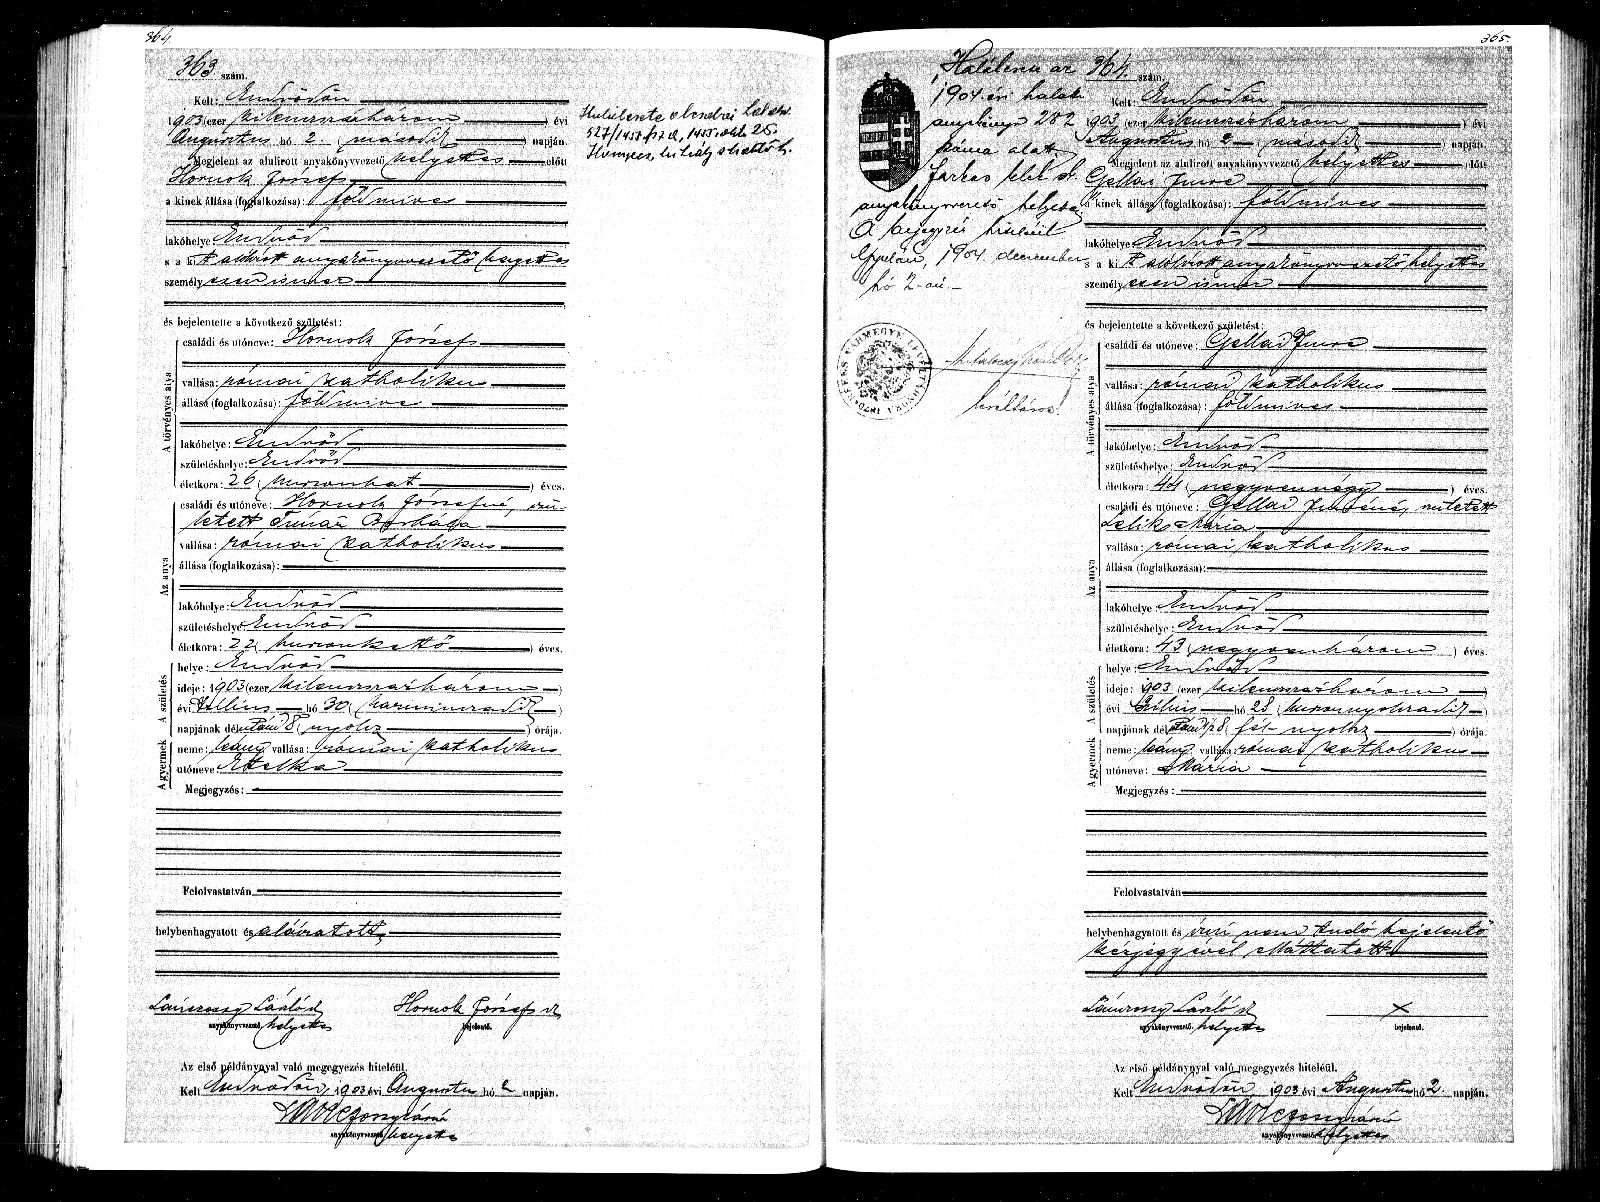 364.
363 szám.
Kelt: Endrődön
1903 (ezer kilenczszázhárom) évi
Augusztus hó 2. (második) napján.
Megjelent az alulirott anyakönyvvezető helyettes előtt
Hornok József
a kinek állása (foglalkozása): földmives
lakóhelye Endrőd
s a kit alólirott anyakönyvvezető helyettes
személyesen ismer
és bejelentette a következő születést:
A törvényes atya
családi és utóneve: Hornok József
vallása: római katholikus
állása (foglalkozása): földmives
lakóhelye: Endrőd
születéshelye: Endrőd
életkora: 26 (huszonhat) éves.
Az anya
családi és utóneve: Hornok Józsefné, szü-
letett Borbála
vallása: római katholikus
állása (foglalkozása):
lakóhelye: Endrőd
születéshelye: Endrőd
életkora: 22 (huszonkettő) éves.
A születés
helye: Endrőd
ideje: 1903 (ezer kilenczszázhárom)
évi Julius hó 30 (harminczadik)
napjának délután 8 (nyolcz) órája.
A gyermek
neme: leány vallása: római katholikus
utóneve: Etelka
Megjegyzés:
Felolvastatván
helybenhagyatott és aláiratott
László Hornok József
anyakönyvvezető helyettes bejelentő.
Az első példánynyal való megegyezés hiteléül.
Kelt Endrődön, 1903 évi Augusztus hó 2 napján.
anyakönyvvezető helyettes
Halálesete
365.
Halálesete az
1904. évi halál.
anyakönyv 282
száma alatt
Farkas
anyakönyvvezető helyettes
A bejegyzés hiteléül
Gyulán, 1904. december
hó 2-án
BÉKÉS VÁRMEGYE
364. szám.
Kelt: Endrődön
1903 (ezer kilenczszázhárom) évi
Augusztus hó 2 (második) napján.
Megjelent az alulirott anyakönyvvezető helyettes előtt
Gellai Imre
a kinek állása (foglalkozása): földmives
lakóhelye Endrőd
s a kit alólirott anyakönyvvezető helyettes
személyesen ismer
és bejelentette a következő születést:
A törvényes atya
családi és utóneve: Gellai Imre
vallása: római katholikus
állása (foglalkozása): földmives
lakóhelye: Endrőd
születéshelye: Endrőd
életkora: 44 (negyvennégy) éves.
Az anya
családi és utóneve: Gellai Imréné, született
Mária
vallása: római katholikus
állása (foglalkozása):
lakóhelye Endrőd
születéshelye: Endrőd
életkora: 43 (negyvenhárom) éves.
A születés
helye: Endrőd
ideje: 1903 (ezer kilenczszázhárom)
évi Julius hó 28 (huszonnyolczadik)
napjának délután ½8 (fél nyolcz) órája.
A gyermek
neme: leány vallása: római katholikus
utóneve: Mária
Megjegyzés:
Felolvastatván
helybenhagyatott és irni nem tudó bejelentő
kézjegyével elláttatott
László x
anyakönyvvezető helyettes bejelentő.
Az első példánynyal való megegyezés hiteléül.
Kelt Endrődön 1903 évi Augusztus hó 2. napján.
anyakönyvvezető helyettes